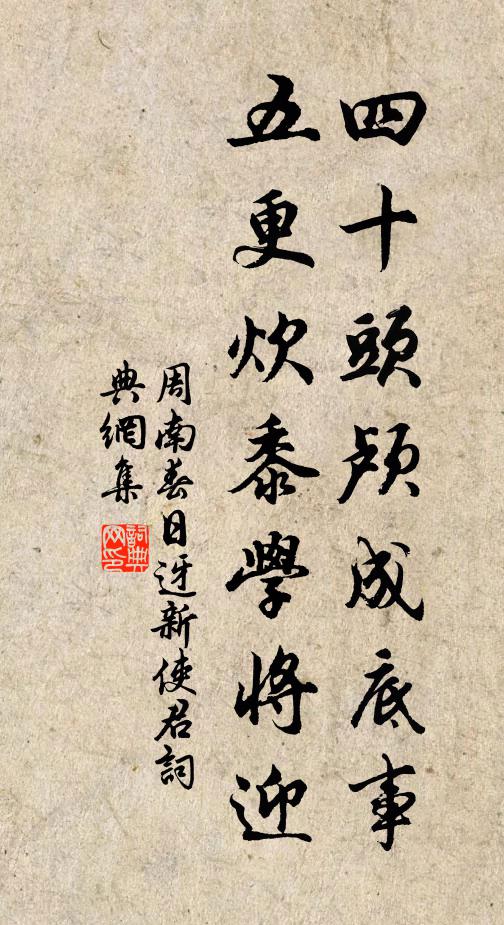 四十頭顱成底事
五更炊黍學將迎
周南春日迓新使君詞
典網集
詞典
网印